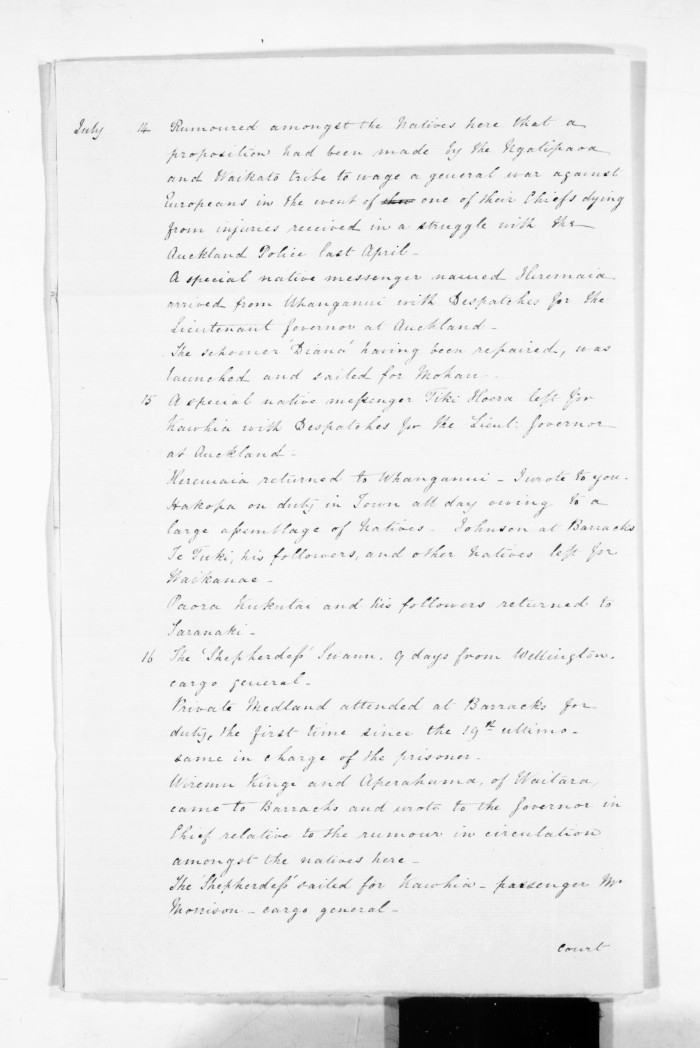 July 14 Rumoured amongst the Natives here that a
proposition had been made by the Ngatipaoa
and Waikato tribe to wage a general war against
Europeans in the event of one of their Chiefs dying
from injuries received in a struggle with the
Auckland Police last April -
A special native messenger named Heremaia
arrived from Whanganui with Despatches for the
Lieutenant Governor at Auckland -
The schooner 'Diana' having been repaired, was
launched and sailed for Mokau -
15 A special native messenger Tiki Hoera left for
Kawhia with Despatches for the Lieut: Governor
at Auckland -
Heremaia returned to Whanganui - I wrote to you -
Hakopa on duty in Town all day owing to a
large assemblage of Natives - Johnson at Barracks
Te Tuki, his followers, and other Natives left for
Waikanae -
Paora Kukutai and his followers returned to
Taranaki -
16 The 'Shepherdess' Swann, 9 days from Wellington,
cargo general -
Private Medland attended at Barracks for
duty, the first time since the 19th ultimo -
same in charge of the prisoner -
Wiremu Kingi and Aperahama, of Waitara,
came to Barracks and wrote to the Governor in
Chief relative to the rumour in circulation
amongst the natives here -
The 'Shepherdess' sailed for Kawhia - passenger Mr
Morrison - cargo general -
Court